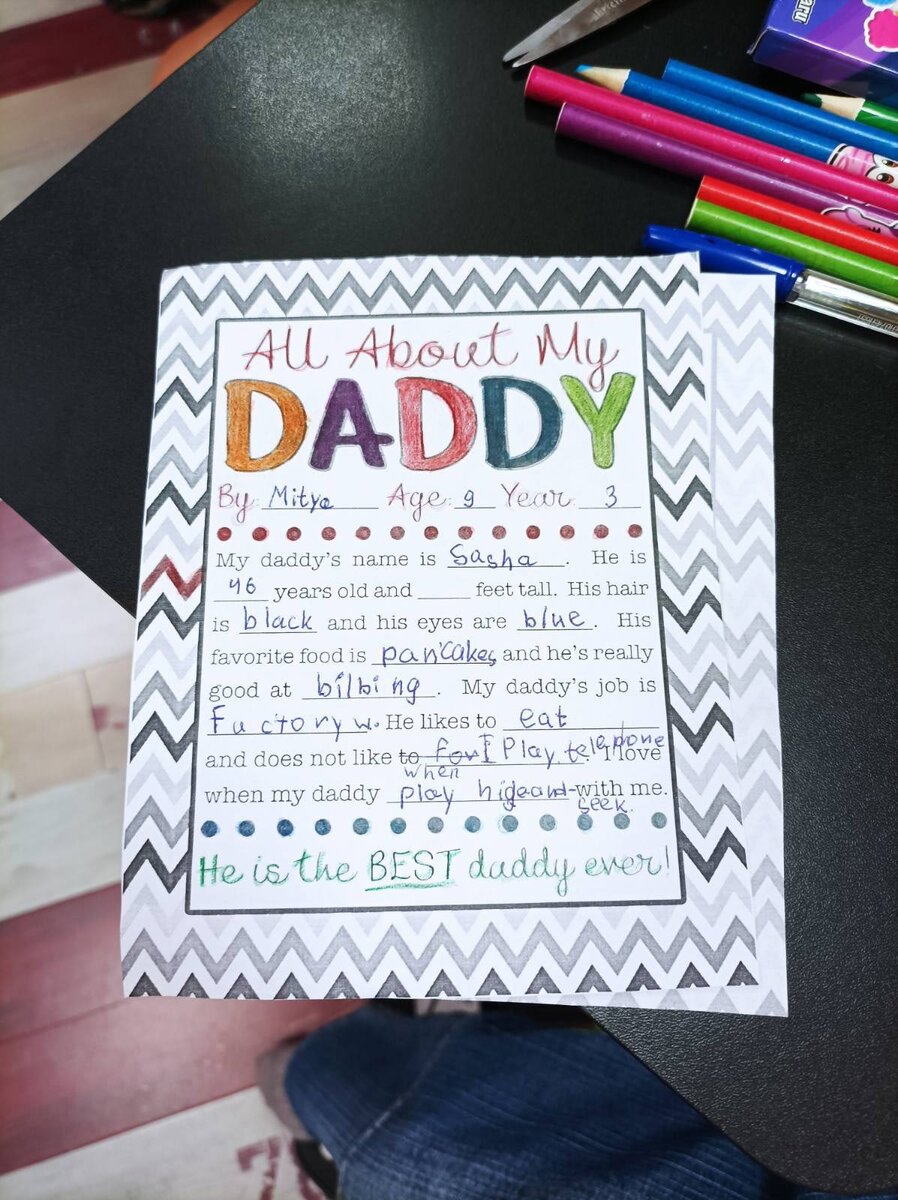 All About My
DADDY
By: Mitya Age: 9 Year 3
My daddy's name is Sasha. He is
46 years old and ____ feet tall. His hair
is black and his eyes are blue. His
favorite food is pancakes, and he's really
good at bilbing. My daddy's job is
Factory w. He likes to eat
and does not like to when I Play telepone. I love
when my daddy play higeand seek with me.
He is the BEST daddy ever!